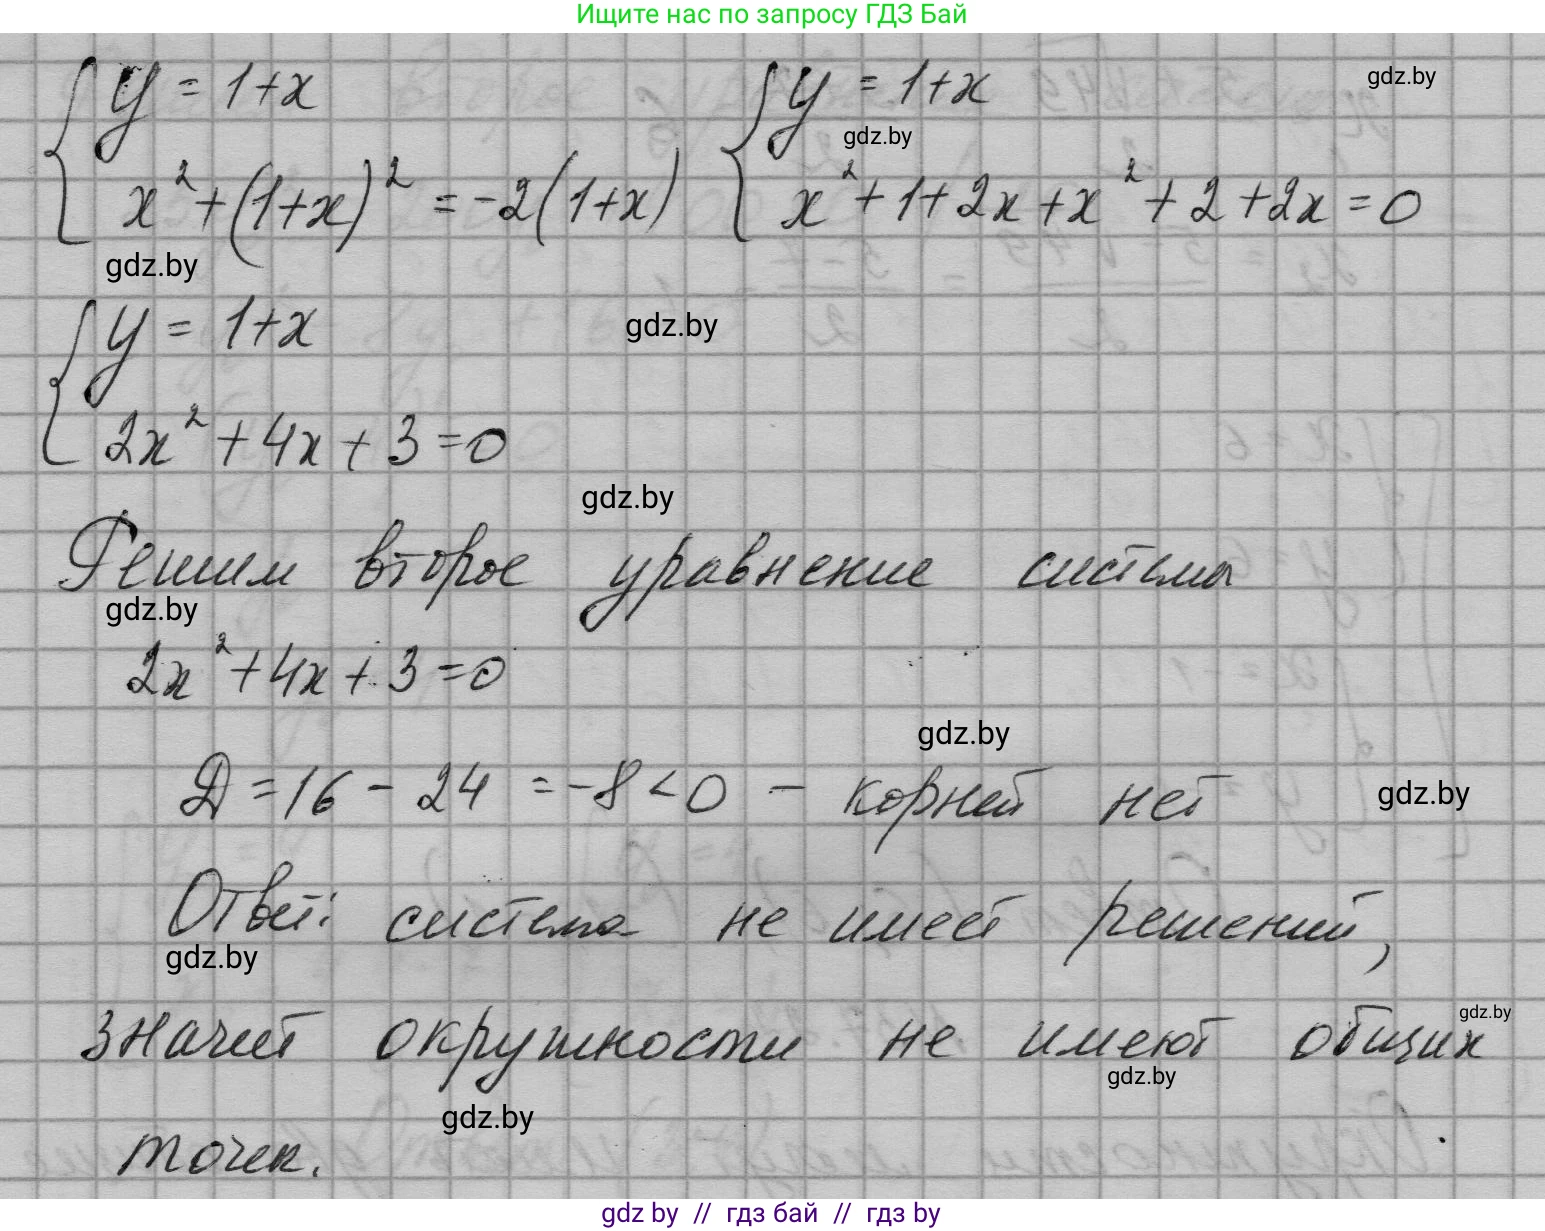 Ищите нас по запросу ГДЗ Бай
y = 1+x
y = 1+x
gdz.by
gdz.by
x² + (1+x)² = -2(1+x)
x² + 1 + 2x + x² + 2 + 2x = 0
gdz.by
y = 1+x
gdz.by
2x² + 4x + 3 = 0
gdz.by
Решим второе уравнение системы
gdz.by
2x² + 4x + 3 = 0
gdz.by
Д = 16 - 24 = -8 < 0 - корней нет
gdz.by
Ответ: система не имеет решений,
gdz.by
значит окружности не имеют общих
gdz.by
gdz.by
gdz.by
точек.
gdz by // гдз бай // гдз by